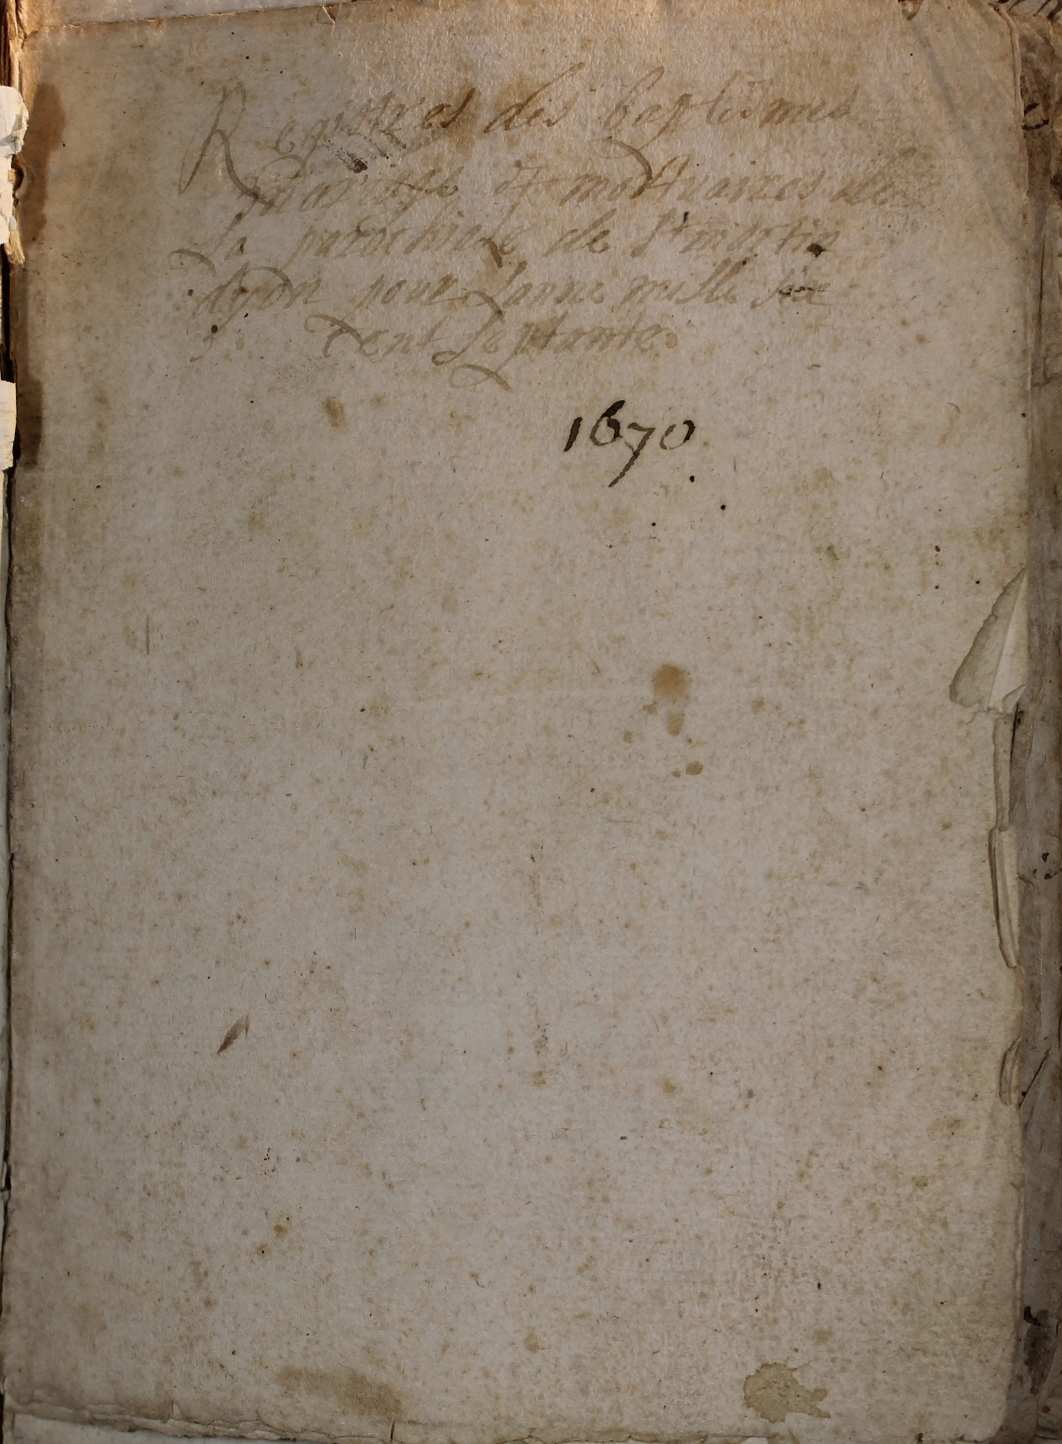 Registres des baptismes
mariages et mortuaires de
la parochiale de St martin
dyon pour lanne mille six
cent septante
1670